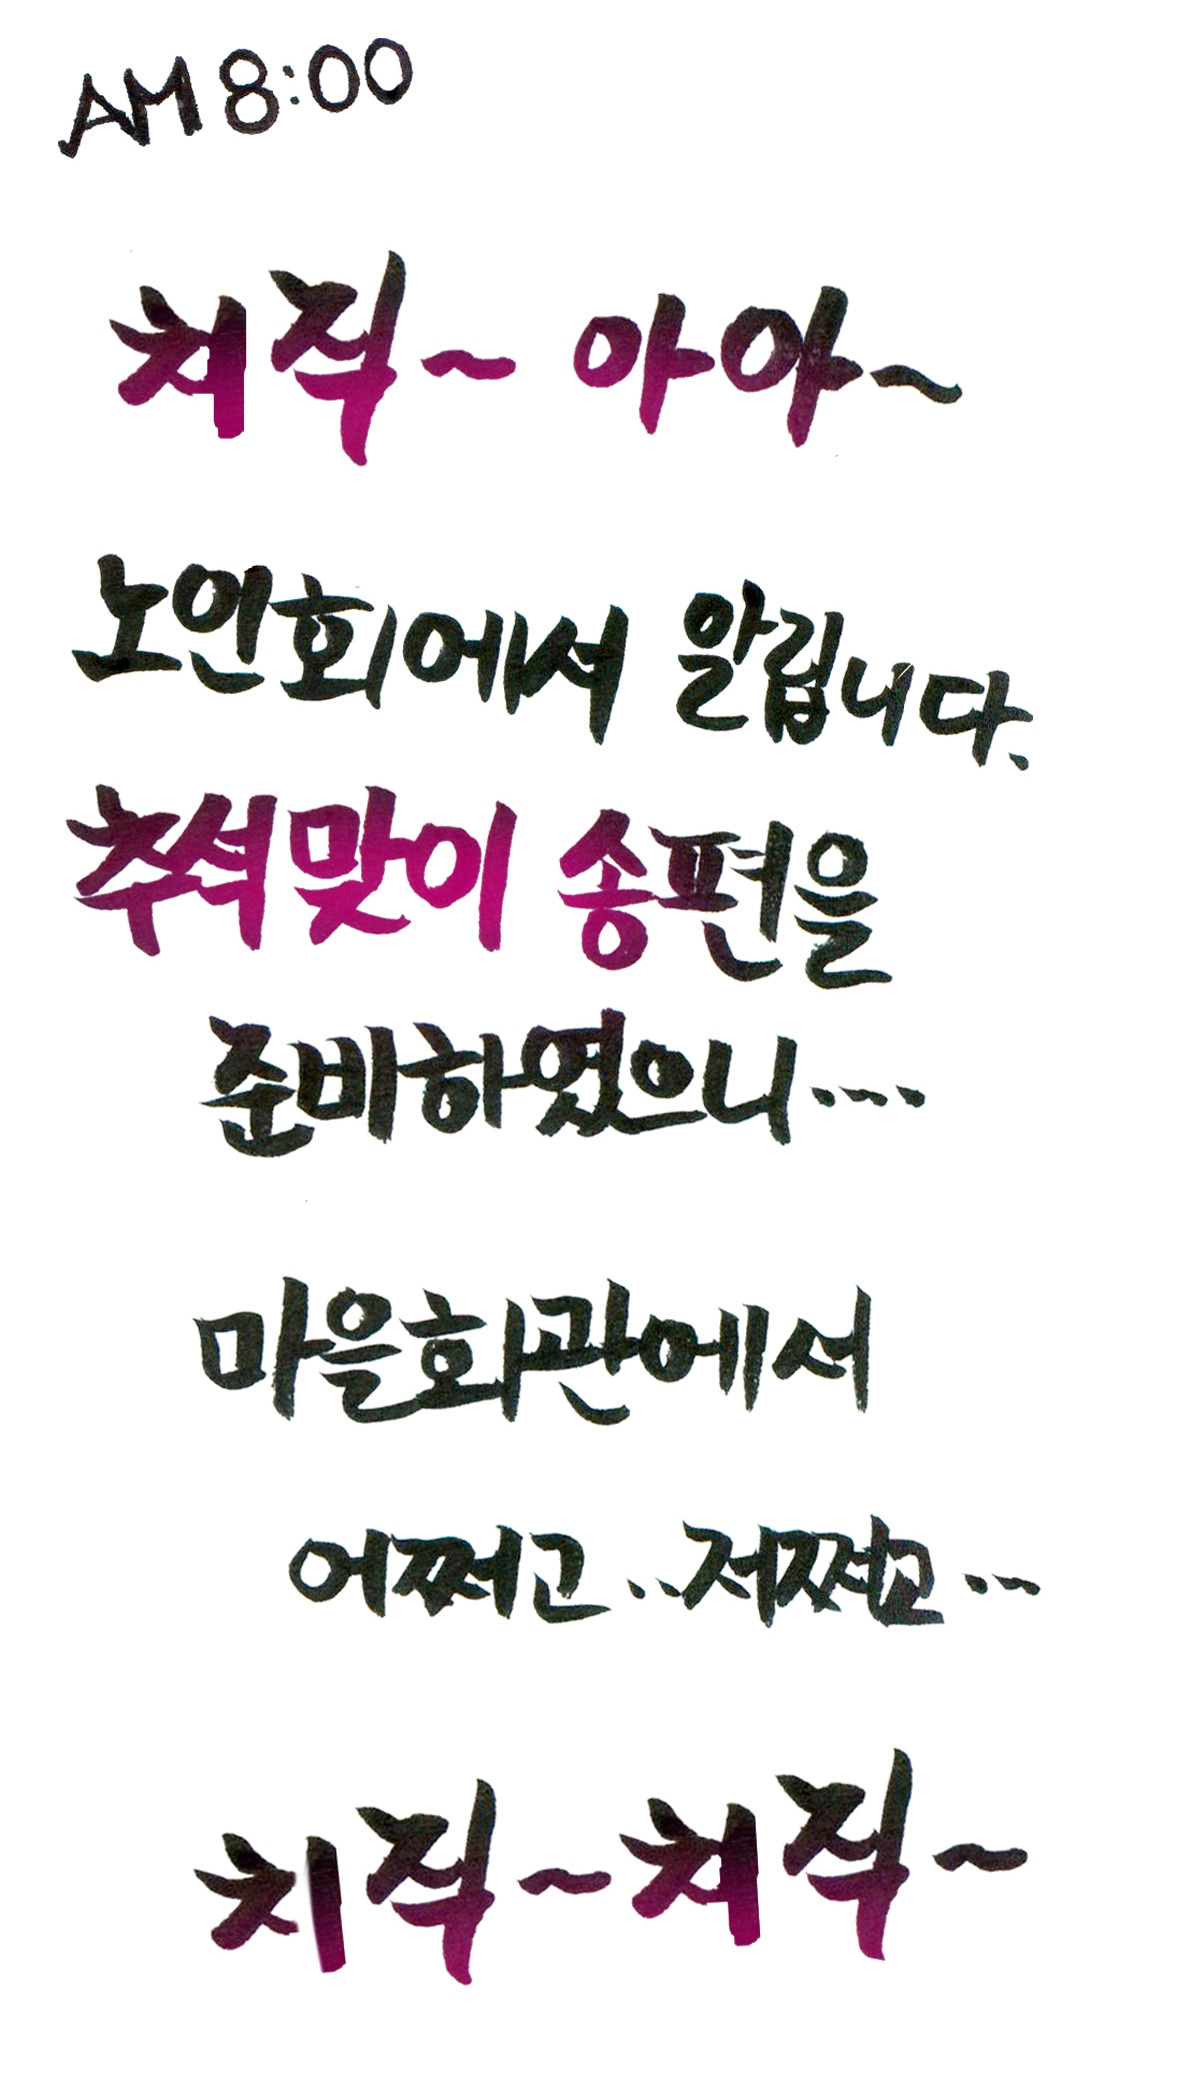 AM 8:00
치직~ 아아~
노인회에서 알립니다.
추석맞이 송편을
준비하였으니....
마을회관에서
어쩌고..저쩌고...
치직~치직~